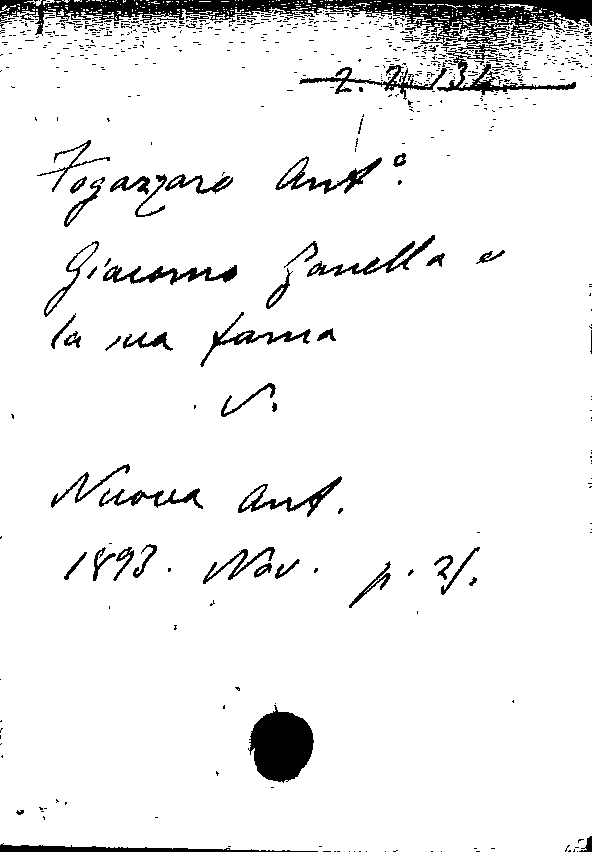 Fogazzaro Ant°.
Giacomo Zanella e
la sua fama
V.
Nuova Ant.
1893. Nov. p.